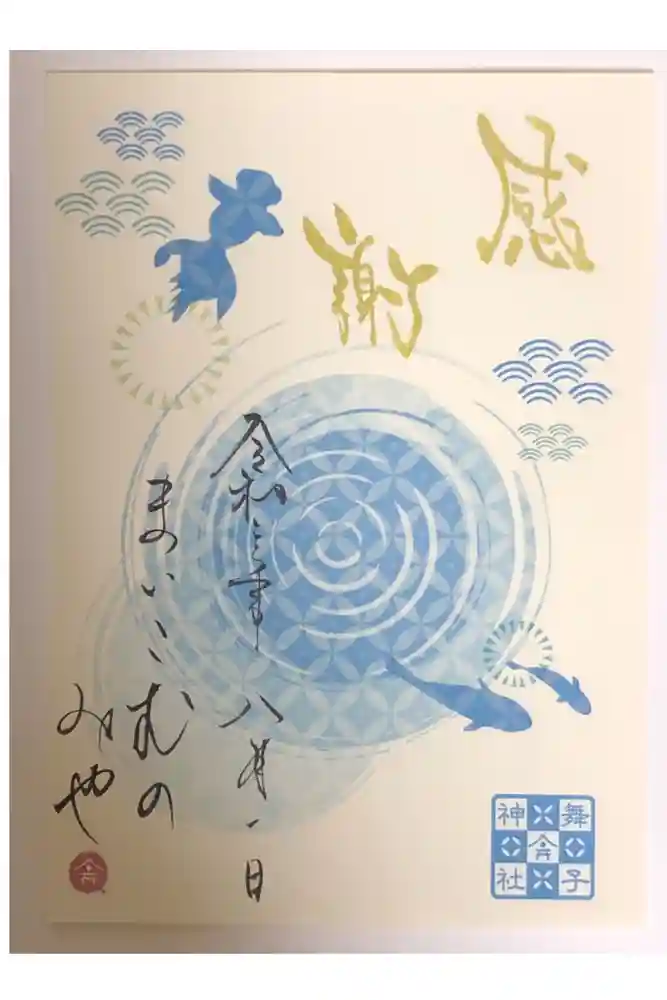 感謝
令和三年 八月一日
まいこむの
みや
舞子
神社